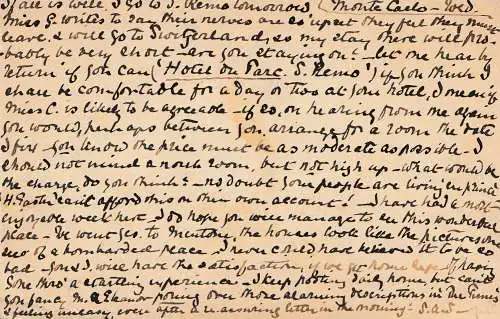 if all is well, I go to S. Remo tomorrow (Monte Carlo - Wed.
Miss G. writes to say their nerves are so upset they feel they must
leave & will go to Switzerland, so my stay there will pro-
bably be very short - are you staying on? - let me hear by
return if you can (Hotel du Parc. S. Remo) if you think I
shall be comfortable for a day or two at your hotel, I mean if
Miss C. is likely to be agreeable - if so, on hearing from me again
you would, perhaps between you, arrange for a room the date
I fix - you know the price must be as moderate as possible - I
should not mind a north room, but not high up - what would be
the charge, do you think? - no doubt your people are living en prince
H. can't afford this on their own account! - I have had a most
enjoyable week here - I do hope you will manage to see this wonderful
place - We went yes. to Mentone, the houses look like the pictures one
sees of a bombarded place - I never could have believed it to be so
bad - you & I will have the satisfaction, if we get home safe, of having
some thro' a startling experience - I keep posting daily home, but can't
you fancy M. & Eleanor poring over those alarming descriptions in the Times
& feeling uneasy, even after a reassuring letter in the morning -